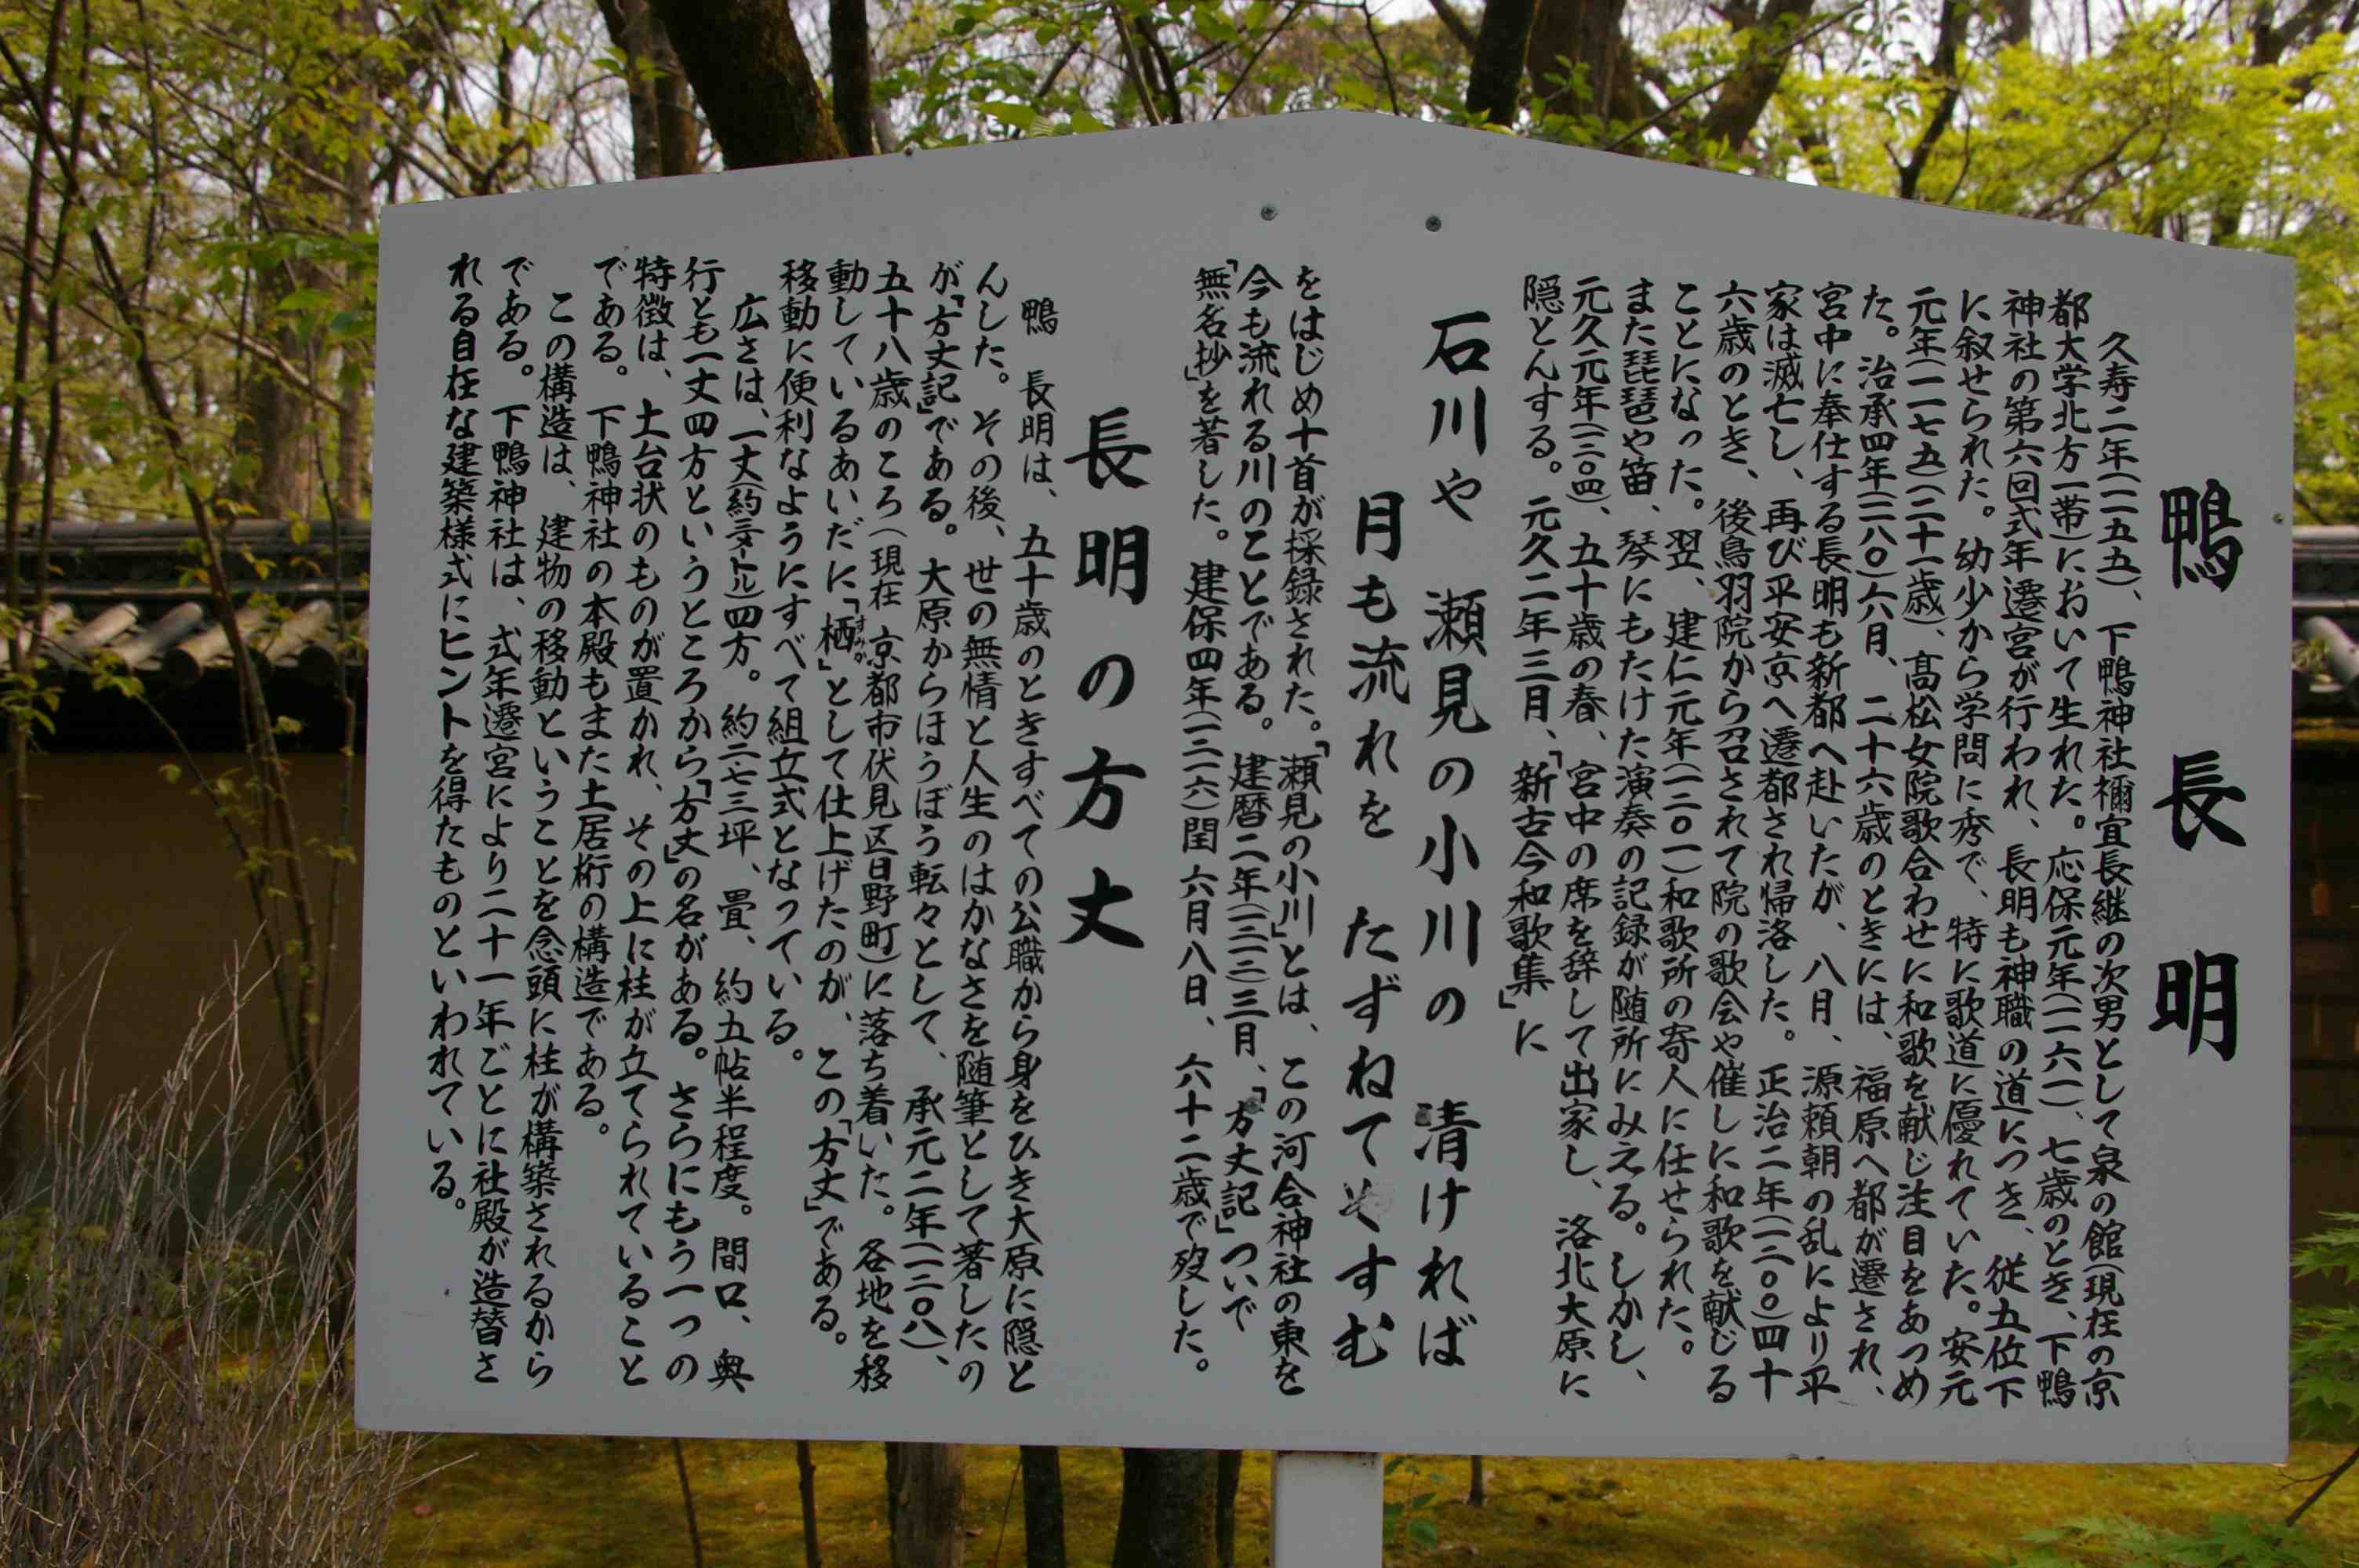 鴨 長 明
久寿二年(一一五五)、下鴨神社禰宜長継の次男として泉の館(現在の京
都大学北方一帯)において生れた。応保元年(一一六一)、七歳のとき、下鴨
神社の第六回式年遷宮が行われ、長明も神職の道につき、従五位下
に叙せられた。幼少から学問に秀で、特に歌道に優れていた。安元
元年(一一七五(二十一歳)、髙松女院歌合わせに和歌を献じ注目をあつめ
た。治承四年(一一八〇)六月、二十六歳のときには、福原へ都が遷され、
宮中に奉仕する長明も新都へ赴いたが、八月、源頼朝の乱により平
家は滅亡し、再び平安京へ遷都され帰洛した。正治二年(一二〇〇)四十
六歳のとき、後鳥羽院から召されて院の歌会や催しに和歌を献じる
ことになった。翌、建仁元年(一二〇一)和歌所の寄人に任せられた。
また琵琶や笛、琴にもたけた演奏の記録が随所にみえる。しかし、
元久元年(一二〇四)、五十歳の春、宮中の席を辞して出家し、洛北大原に
隠とんする。元久二年三月、「新古今和歌集」に
石川や 瀬見の小川の 清ければ
月も流れを たずねてぞすむ
をはじめ十首が採録された。「瀬見の小川」とは、この河合神社の東を
今も流れる川のことである。建暦二年(一二一二)三月、「方丈記」ついで
「無名抄」を著した。建保四年(一二一六)閏六月八日、六十二歳で歿した。
長明の方丈
鴨 長明は、五十歳のときすべての公職から身をひき大原に隠と
んした。その後、世の無情と人生のはかなさを随筆として著したの
が「方丈記」である。大原からほうぼう転々として、承元二年(一二〇八)、
五十八歳のころ(現在 京都市伏見区日野町)に落ち着いた。各地を移
動しているあいだに「栖」として仕上げたのが、この「方丈」である。
すみか
移動に便利なようにすべて組立式となっている。
広さは、一丈(約三メートル)四方。約二・七三坪、畳、約五帖半程度。間口、奥
行とも一丈四方というところから「方丈」の名がある。さらにもう一つの
特徴は、土台状のものが置かれ、その上に柱が立てられていること
である。下鴨神社の本殿もまた土居桁の構造である。
この構造は、建物の移動ということを念頭に柱が構築されるから
である。下鴨神社は、式年遷宮により二十一年ごとに社殿が造替さ
れる自在な建築様式にヒントを得たものといわれている。